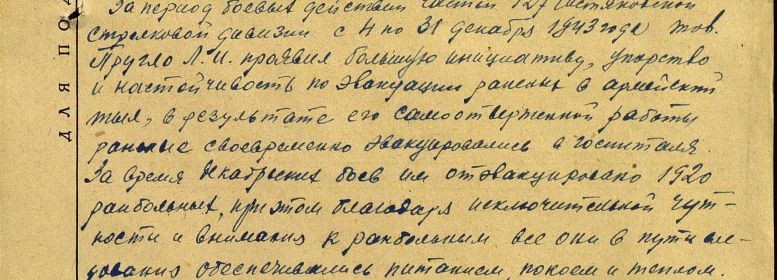 За период боевых действий частей 127 Чистяковской
стрелковой дивизии с 4 по 31 декабря 1943 года тов.
Пругло Л.И. проявил большую инициативу, упорство
и настойчивость по эвакуации раненых в армейский
тыл, в результате его самоотверженной работы
раненые своевременно эвакуировались в госпиталя.
За время декабрьских боев им отэвакуировано 1920
ранбольных, при этом благодаря исключительной чут-
ности и внимания к ранбольным все они в пути сле-
дования обеспечивались питанием, покоем и теплом.
ДЛЯ ПО